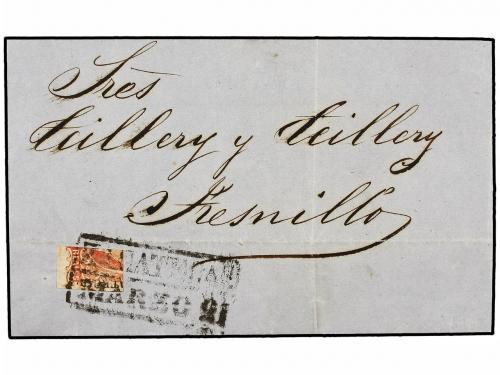 Sres
Tuillery y Tuillery
Fresnillo
MARZO 21